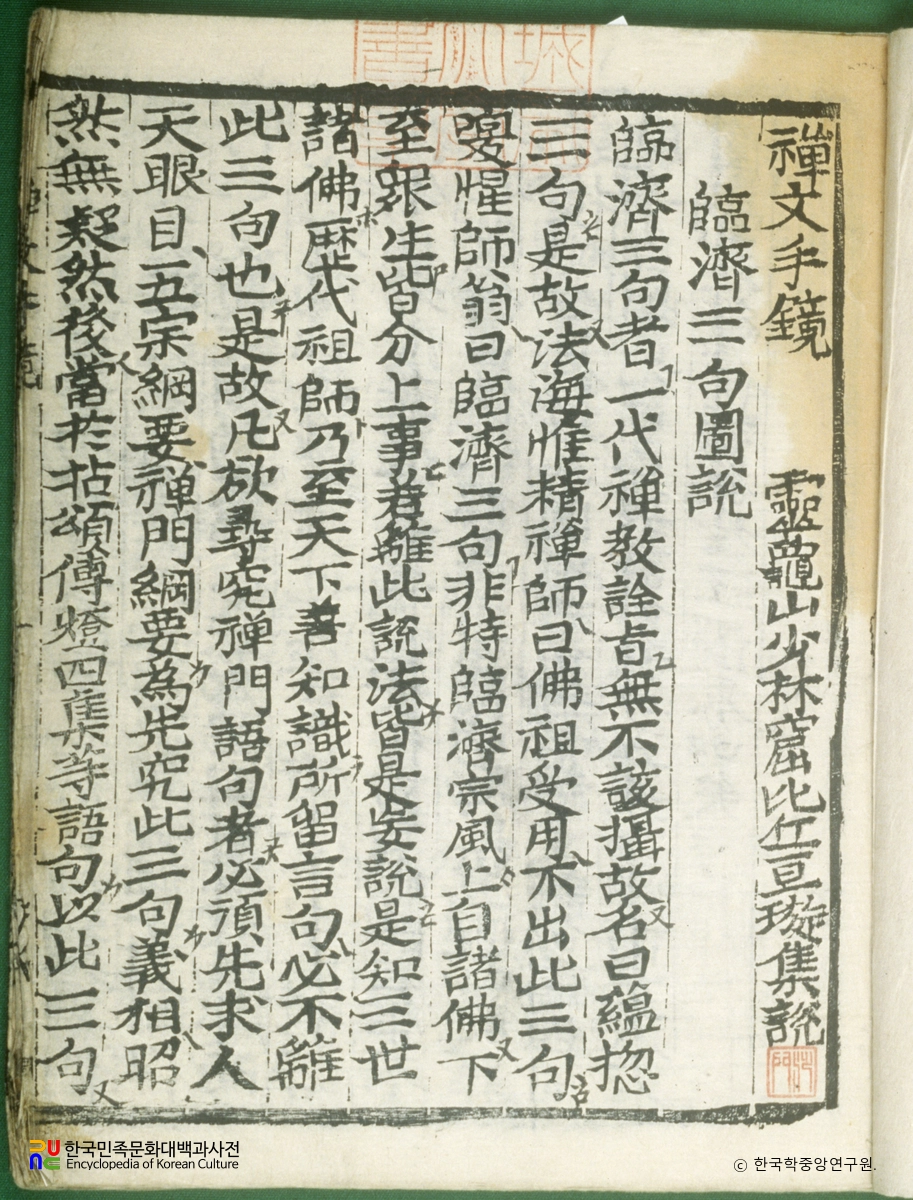 禪文手鏡　靈龜山少林窟比丘亘璇集說
臨濟三句圖說
臨濟三句者一代禪教詮旨無不該攝故名曰蘊揔
三句是故法海惟精禪師曰佛祖受用不出此三句
惺師翁曰臨濟三句非特臨濟宗風上自諸佛下
至衆生皆分上事若離此說法皆是妄說是知三世
諸佛歷代祖師乃至天下善知識所留言句必不離
此三句也是故凡欲尋究禪門語句者必須先求人
天眼目五宗綱要禪門綱要為先究此三句義相昭
然無疑然後當於拈頌傳燈四集等語句以此三句
한국민족문화대백과사전
Encyclopedia of Korean Culture
© 한국학중앙연구원.